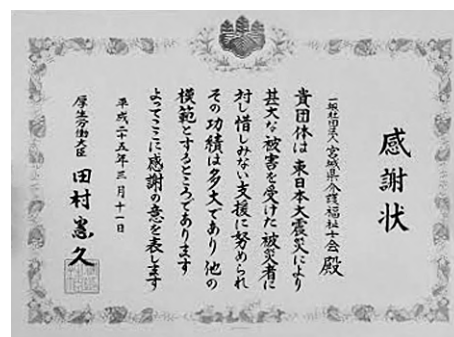 感謝状
一般社団法人 宮城県介護福祉士会 殿
貴団体は 東日本大震災により
甚大な被害を受けた被災者に
対し惜しみない支援に努められ
その功績は多大であり 他の
模範とするところであります
よってここに感謝の意を表します
平成二十五年三月十一日
厚生労働大臣 田村憲久